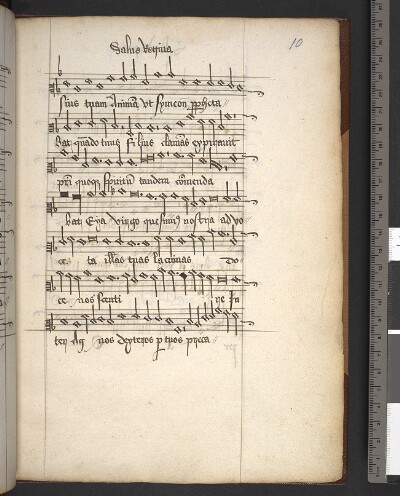 Salve Regina
10
suis tuam animam ut symeon ppheta
Bat quando tuus filius clamans expiravit
ptri quoqz spiritu tandem comenda
bat Eya virgo que sumus nostra advo
ca ta illas tuas lacrimas Do
ce nos senti re In
ter nos dexteros p tuos preca